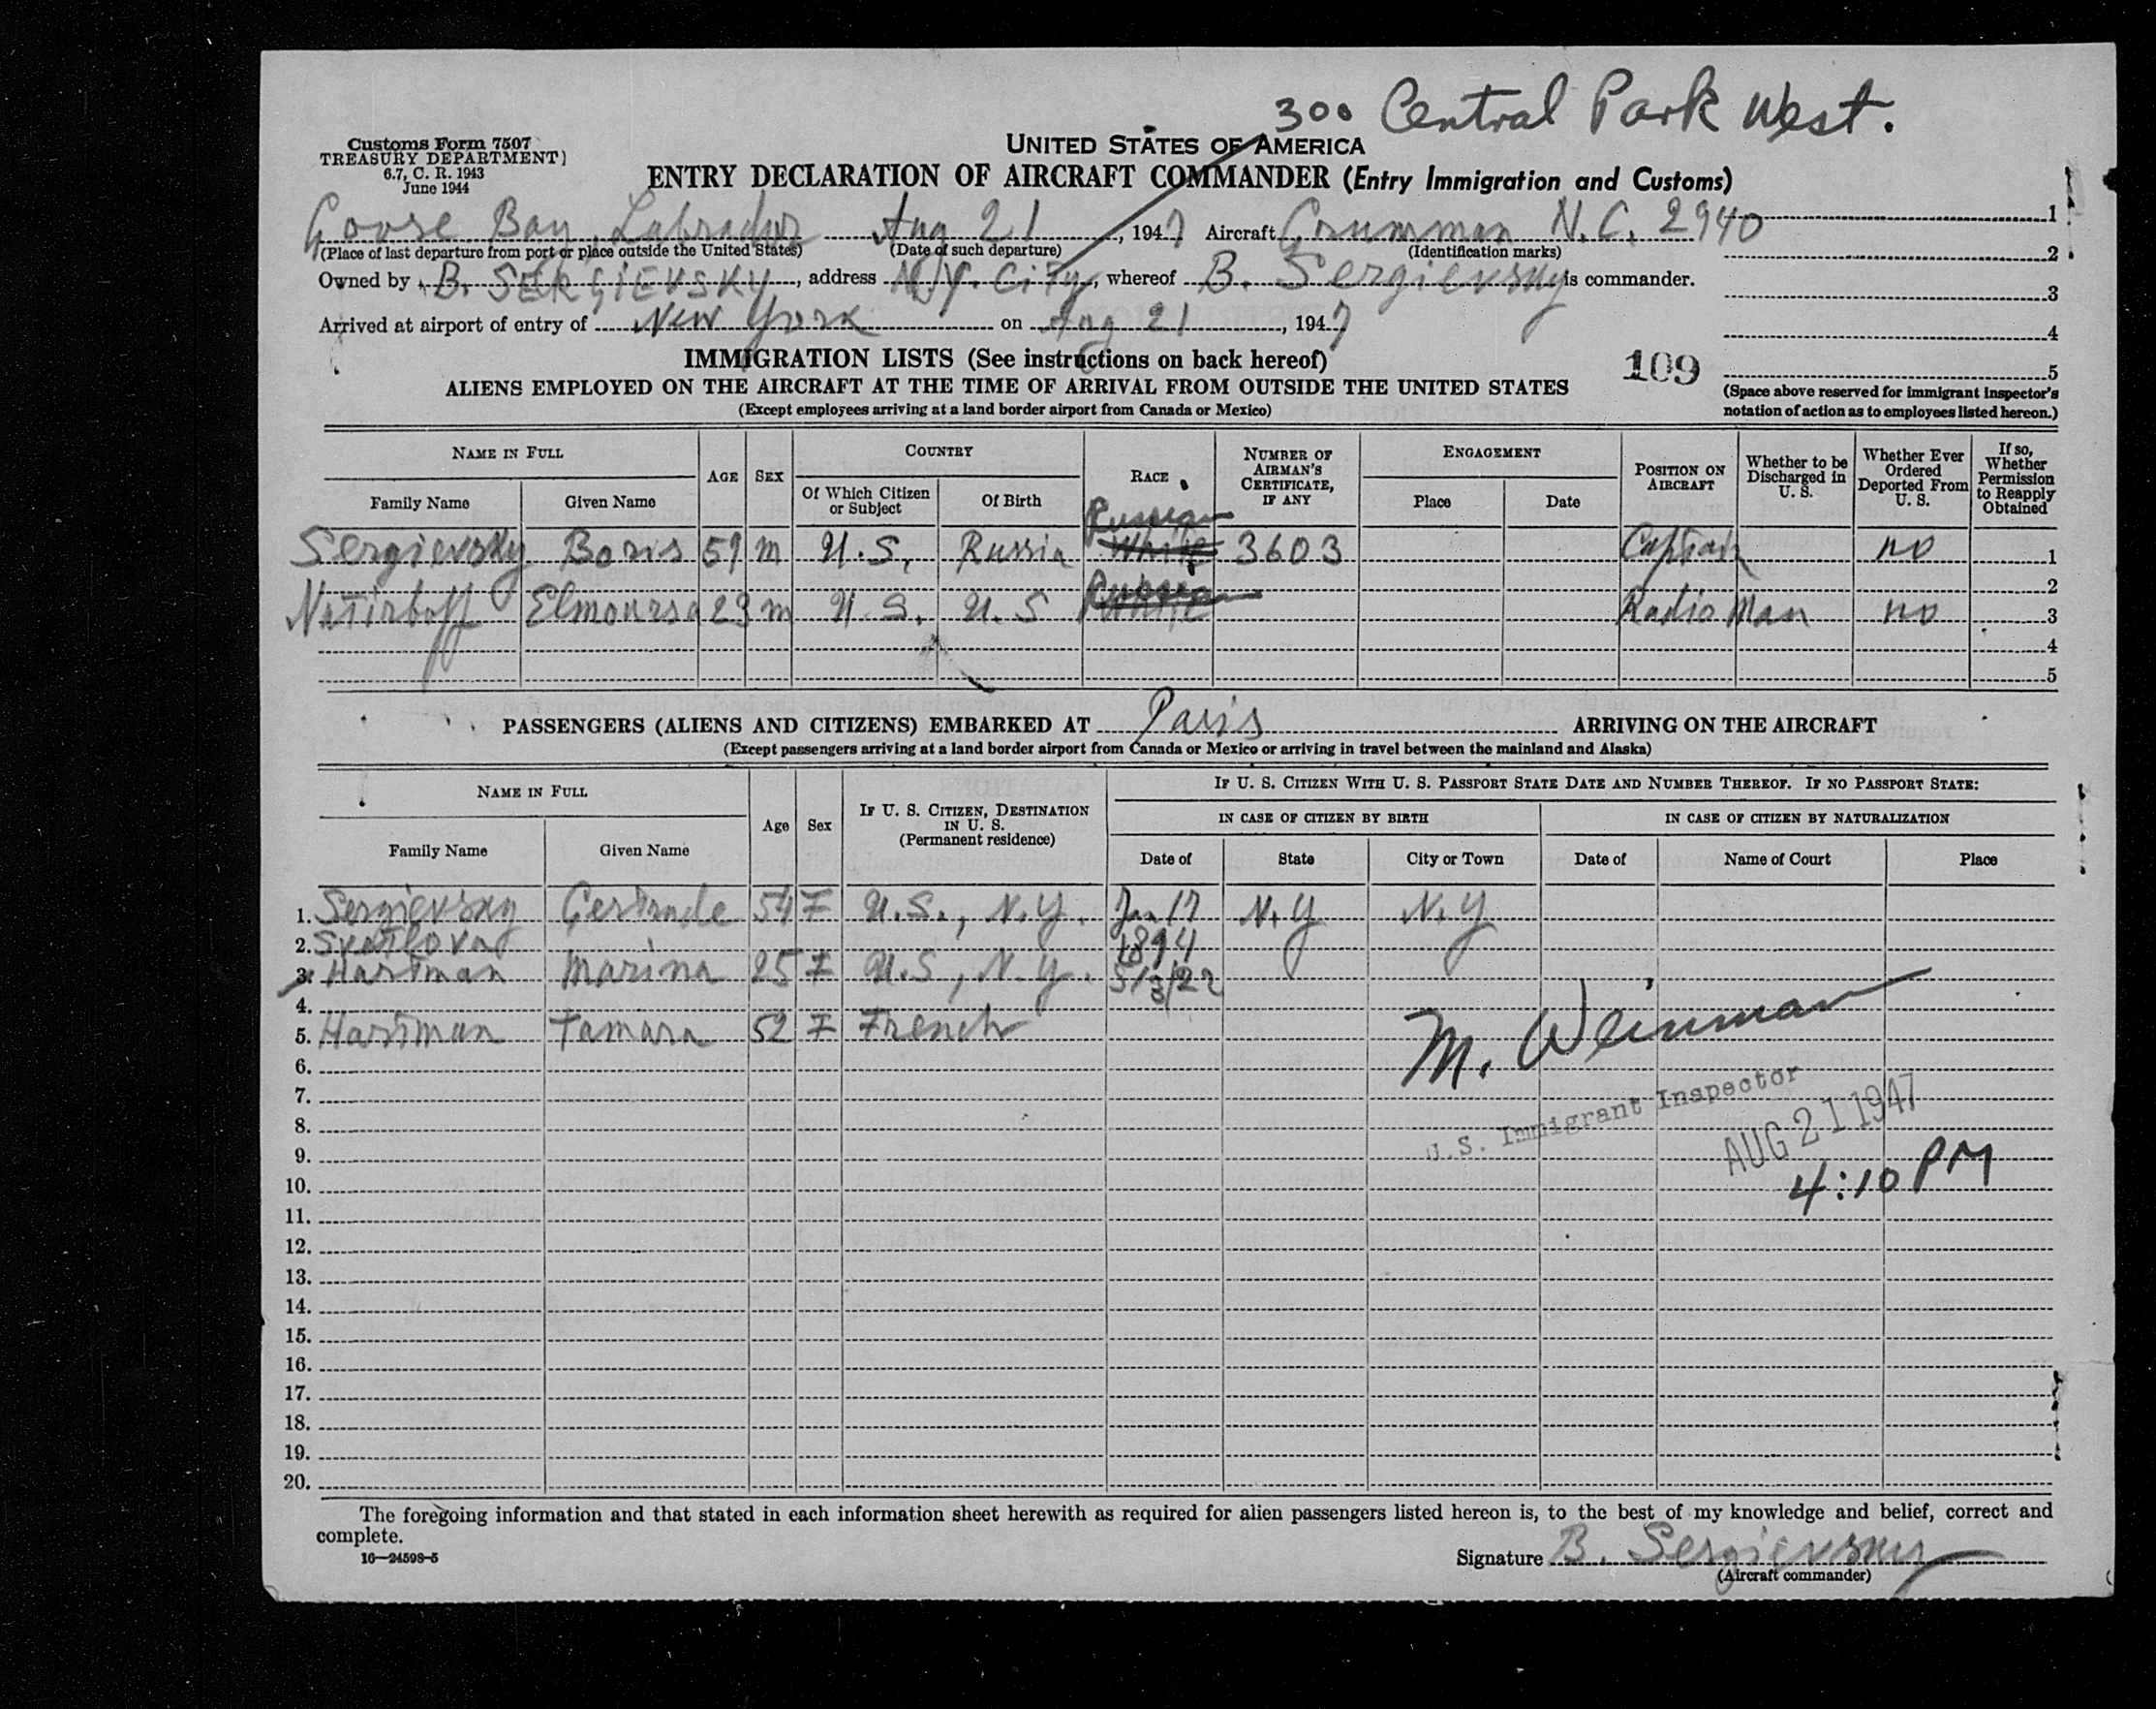 300 Central Park West.
Customs Form 7507
TREASURY DEPARTMENT)
6.7, C. R. 1943
June 1944
UNITED STATES OF AMERICA
ENTRY DECLARATION OF AIRCRAFT COMMANDER (Entry Immigration and Customs)
Goose Bay, Labrador Aug 21, 1947 Aircraft Grumman N.C. 2940 1
(Place of last departure from port or place outside the United States) (Date of such departure) (Identification marks) 2
Owned by B. SERGIEVSKY, address N.Y. City, whereof B. Sergievsky is commander. 3
Arrived at airport of entry of New York on Aug 21, 1947 4
IMMIGRATION LISTS (See instructions on back hereof) 109 5
ALIENS EMPLOYED ON THE AIRCRAFT AT THE TIME OF ARRIVAL FROM OUTSIDE THE UNITED STATES (Space above reserved for immigrant inspector's
(Except employees arriving at a land border airport from Canada or Mexico) notation of action as to employees listed hereon.)
NAME IN FULL AGE SEX COUNTRY RACE NUMBER OF AIRMAN'S CERTIFICATE, IF ANY ENGAGEMENT POSITION ON AIRCRAFT Whether to be Discharged in U. S. Whether Ever Ordered Deported From U. S. If so, Whether Permission to Reapply Obtained
Family Name Given Name Of Which Citizen or Subject Of Birth Place Date
Russian
Sergievsky Boris 59 m U.S. Russia White 3603 Captain no 1
Russian 2
Natirboff Elmoursa 23 m U.S. U.S White Radio Man no 3
4
5
PASSENGERS (ALIENS AND CITIZENS) EMBARKED AT Paris ARRIVING ON THE AIRCRAFT
(Except passengers arriving at a land border airport from Canada or Mexico or arriving in travel between the mainland and Alaska)
NAME IN FULL Age Sex IF U. S. CITIZEN, DESTINATION IN U. S. (Permanent residence) IF U. S. CITIZEN WITH U. S. PASSPORT STATE DATE AND NUMBER THEREOF. IF NO PASSPORT STATE:
IN CASE OF CITIZEN BY BIRTH IN CASE OF CITIZEN BY NATURALIZATION
Family Name Given Name Date of State City or Town Date of Name of Court Place
1. Sergievsky Gertrude 54 F U.S., N.Y. Jan 17 N.Y N.Y
2. Svetlova 1894
3. Hartman Marina 25 F U.S, N.Y. 5/3/22
4.
5. Hartman Tamara 52 F French
M. Weinman
6.
7.
U.S. Immigrant Inspector
8.
AUG 21 1947
9.
10. 4:10 PM
11.
12.
13.
14.
15.
16.
17.
18.
19.
20.
The foregoing information and that stated in each information sheet herewith as required for alien passengers listed hereon is, to the best of my knowledge and belief, correct and
complete.
16—24598-5
Signature B. Sergievsky
(Aircraft commander)